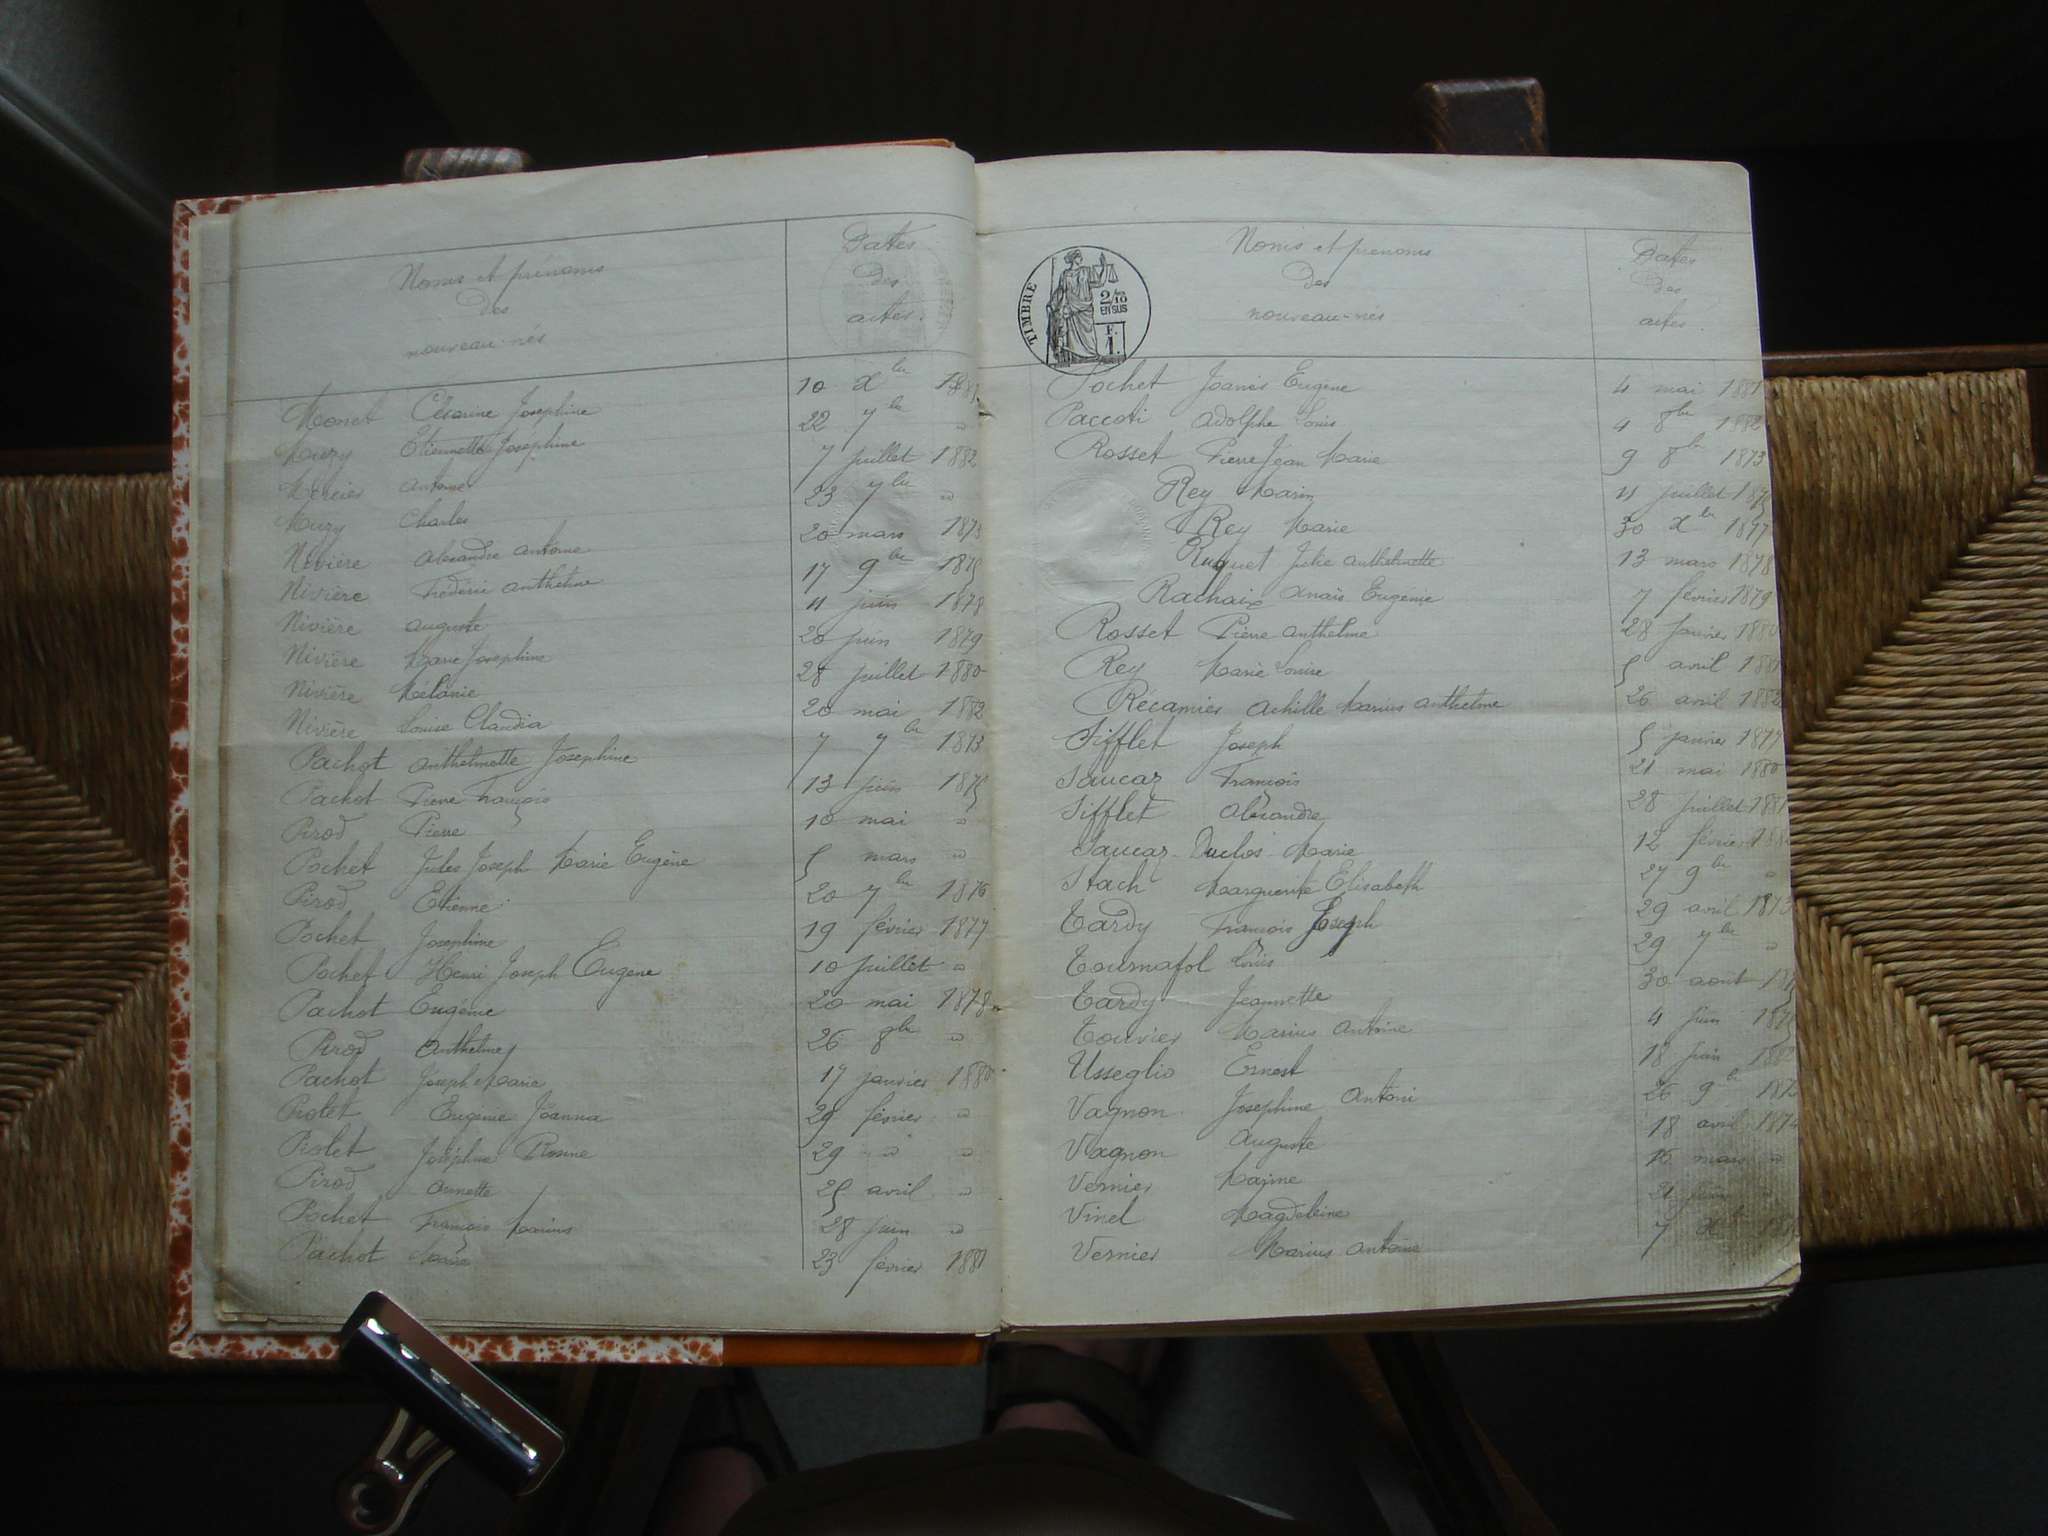 Noms et prénoms
des
nouveau-nés
Dates
des
actes.
Monet Césarine Josephine 10 Xbre 1881
Muzy Etiennette Josephine 22 7bre "
Mercier Antoine 7 juillet 1882
Muzy Charles 23 7bre "
Nivière Alexandre Antoine 20 mars 1873
Nivière Fréderic Anthelme 17 9bre 1875
Nivière Auguste 11 juin 1878
Nivière Marie Josephine 20 juin 1879
Nivière Mélanie 28 juillet 1880
Nivière Louise Claudia 20 mai 1882
Pachot Anthelmette Josephine 7 7bre 1873
Pachot Pierre François 13 juin 1875
Pirod Pierre 10 mai "
Pochet Jules Joseph Marie Eugène 5 mars "
Pirod Etienne 20 7bre 1876
Pochet Josephine 19 février 1877
Pochet Henri Joseph Eugène 10 juillet "
Pachot Eugénie 20 mai 1878
Pirod Anthelme 26 8bre "
Pachot Joseph Marie 17 janvier 1880
Piolet Eugénie Joanna 29 février "
Piolet Joséphine Rosine 29 " "
Pirod Annette 25 avril "
Pochet François Marius 28 juin "
Pachot 23 février 1881
TIMBRE
2/10
EN SUS
F.
1.
Noms et prénoms
des
nouveau-nés
Dates
des
actes.
Pochet Joanès Eugène 4 mai 1881
Paccoti Adolphe Louis 4 8bre 1882
Rosset Pierre Jean Marie 9 8bre 1873
Rey Marin 11 juillet
Rey Marie 30 Xbre 1877
Ruquet Julie Anthelmette 13 mars 1878
Rachaix Anaïs Eugenie 7 février 1879
Rosset Pierre Anthelme 28 janvier 1880
Rey Marie Louise 5 avril 1881
Récamier Achille Marius Anthelme 26 avril 1882
Sifflet Joseph 5 janvier 1877
Saucaz François 21 mai 1880
Sifflet Alexandre 28 juillet 1881
Saucaz Duclos Marie 12 février
Stach Marguerite Elisabeth 27 9bre "
Tardy François Joseph 29 avril 1873
Tournafol Louis 29 7bre "
Tardy Jeannette 30 août
Touvier Marius Antoine 4 juin
Usseglio Ernest 18 juin 1882
Vagnon Josephine Antoni 26 9bre
Vagnon Auguste 18 avril 1874
Vernier Maxime 16 mars "
Vinel Magdeleine 21 juin
Vernier Marius Antoine 7 Xbre